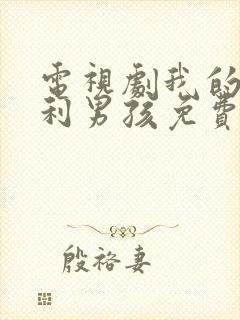 電視劇我的
利男孩免費
殷裕妻